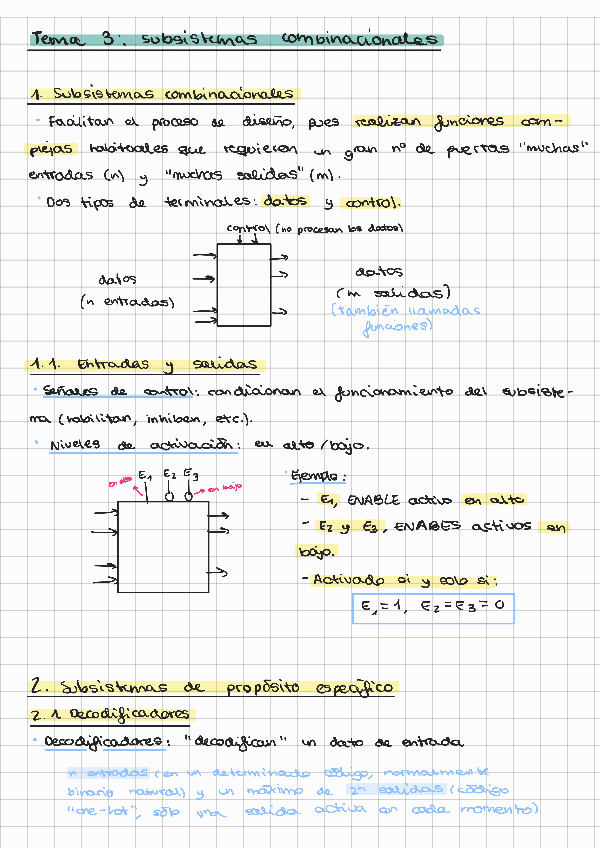 Tema 3: subsistemas combinacionales
1. Subsistemas combinacionales
· Facilitan el proceso de diseño, pues realizan funciones com-
plejas habituales que requieren un gran nº de puertas "muchas"
entradas (n) y "muchas salidas" (m).
· Dos tipos de terminales: datos y control.
control (no procesan los datos)
datos
(n entradas)
datos
(m salidas)
(también llamadas
funciones)
1.1. Entradas y salidas
· Señales de control: condicionan el funcionamiento del subsiste-
ma (habilitan, inhiben, etc.).
· Niveles de activación: en alto/bajo.
en alto
E1 E2 E3
en bajo
· Ejemplo:
- E1, ENABLE activo en alto
- E2 y E3, ENABES activos en
bajo.
- Activado si y solo si:
E1=1, E2=E3=0
2. Subsistemas de propósito específico
2.1 Decodificadores
· Decodificadores: "decodifican" un dato de entrada
n entradas (en un determinado código, normalmente
binario natural) y un máximo de 2ⁿ salidas (código
"one-hot", sólo una salida activa en cada momento)